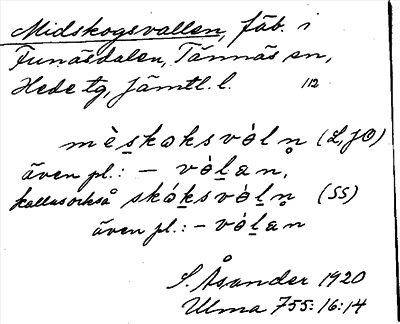 Midskogsvallen, fäb. i
Funäsdalen, Tännäs sn,
Hede tg, Jämtl. l. 112
mèskoksvòḷn̥ (L, JÖ)
även pl.: – vòḷan,
kallas också skóksvòḷn̥ (SS)
även pl.: – vóḷan
S. Åsander 1920
Ulma 755:16:14